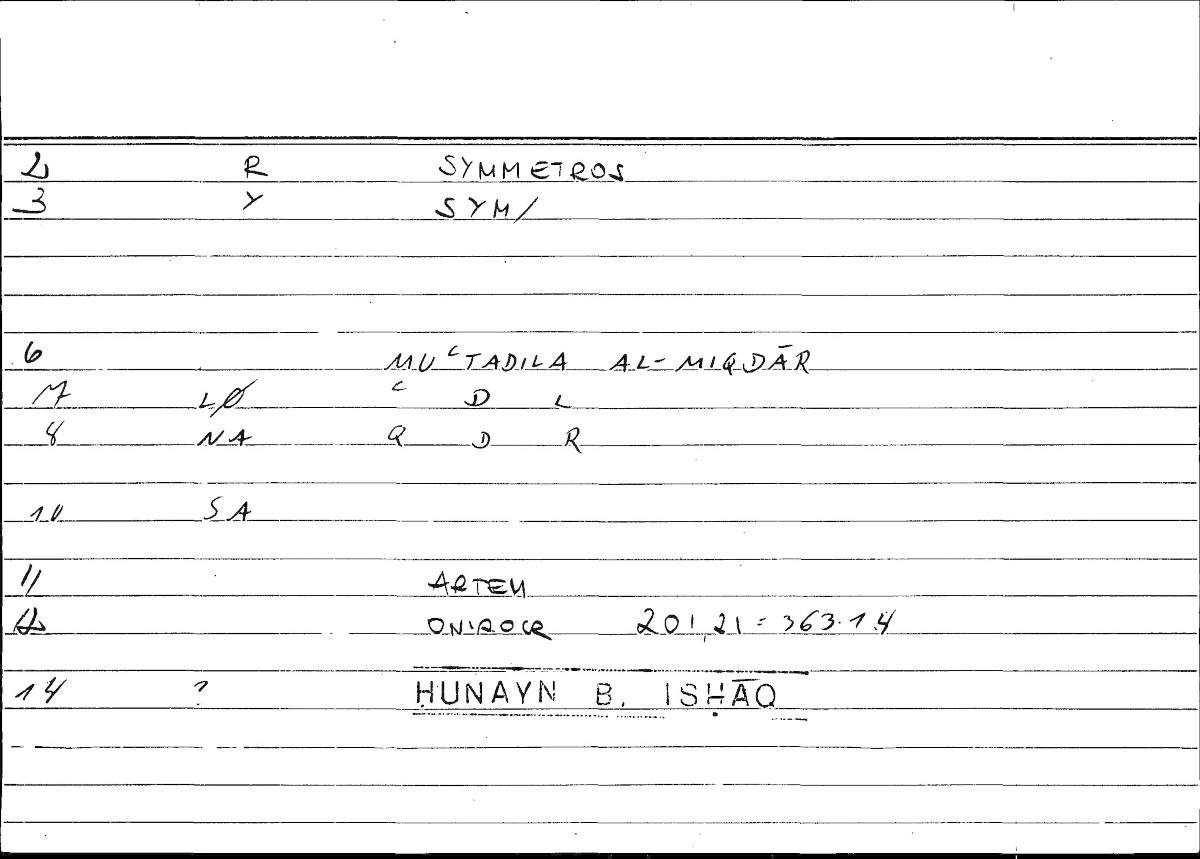 2 R SYMMETROS
3 Y SYM/
6 MUʿTADILA AL-MIQDĀR
7 LØ ʿ D L
8 NA Q D R
10 SA
11 ARTEM
12 ONIROCR 201,21 = 363.14
14 ? ḤUNAYN B. ISḤĀQ